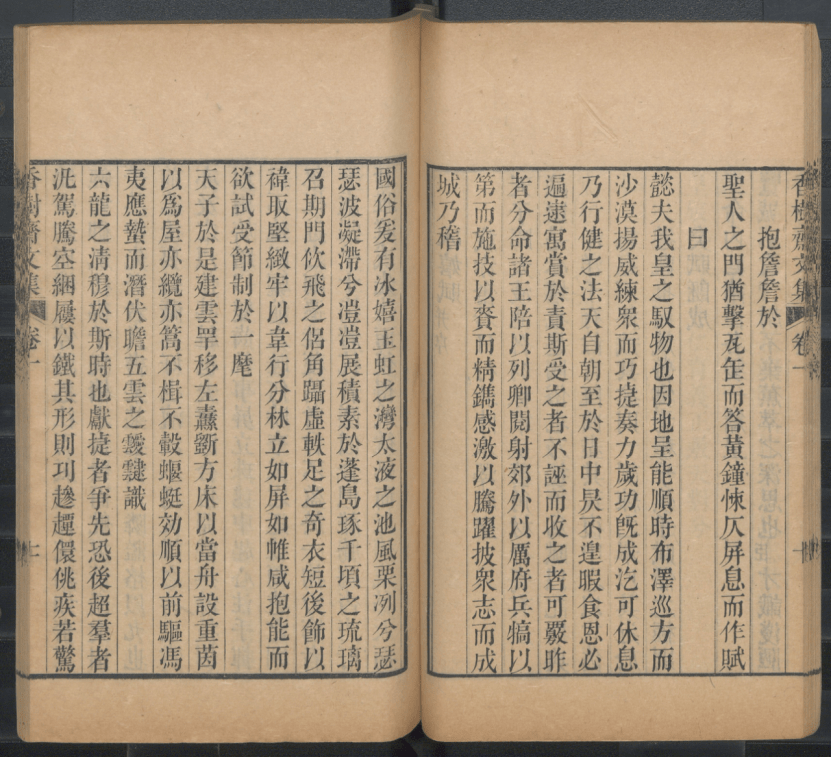 香樹齋文集 卷一 十
抱詹詹於
聖人之門猶擊瓦缶而答黃鐘悚仄屏息而作賦
曰
懿夫我皇之馭物也因地呈能順時布澤巡方而
沙漠揚威練衆而巧捷奏力歲功旣成汔可休息
乃行健之法天自朝至於日中昃不遑暇食恩必
遍逮寓賞於責斯受之者不誣而收之者可覈昨
者分命諸王陪以列卿閱射郊外以厲府兵犒以
第而施技以賚而精鐫感激以騰躍披衆志而成
城乃稽
國俗爰有冰嬉玉虹之灣太液之池風栗冽兮瑟
瑟波凝滯兮凒凒展積素於蓬島琢千頃之琉璃
召期門佽飛之侶角躡虛軼足之奇衣短後飾以
褘取堅緻牢以韋行分林立如屏如帷咸抱能而
欲試受節制於一麾
天子於是建雲罕移左纛斵方床以當舟設重茵
以爲屋亦纜亦篙不楫不轂蝘蜓効順以前驅馮
夷應蟄而潛伏瞻五雲之靉靆識
六龍之清穆於斯時也獻捷者爭先恐後超羣者
汎駕騰空綑屨以鐵其形則刓趁趯儇佻疾若驚
香樹齋文集 卷一 十